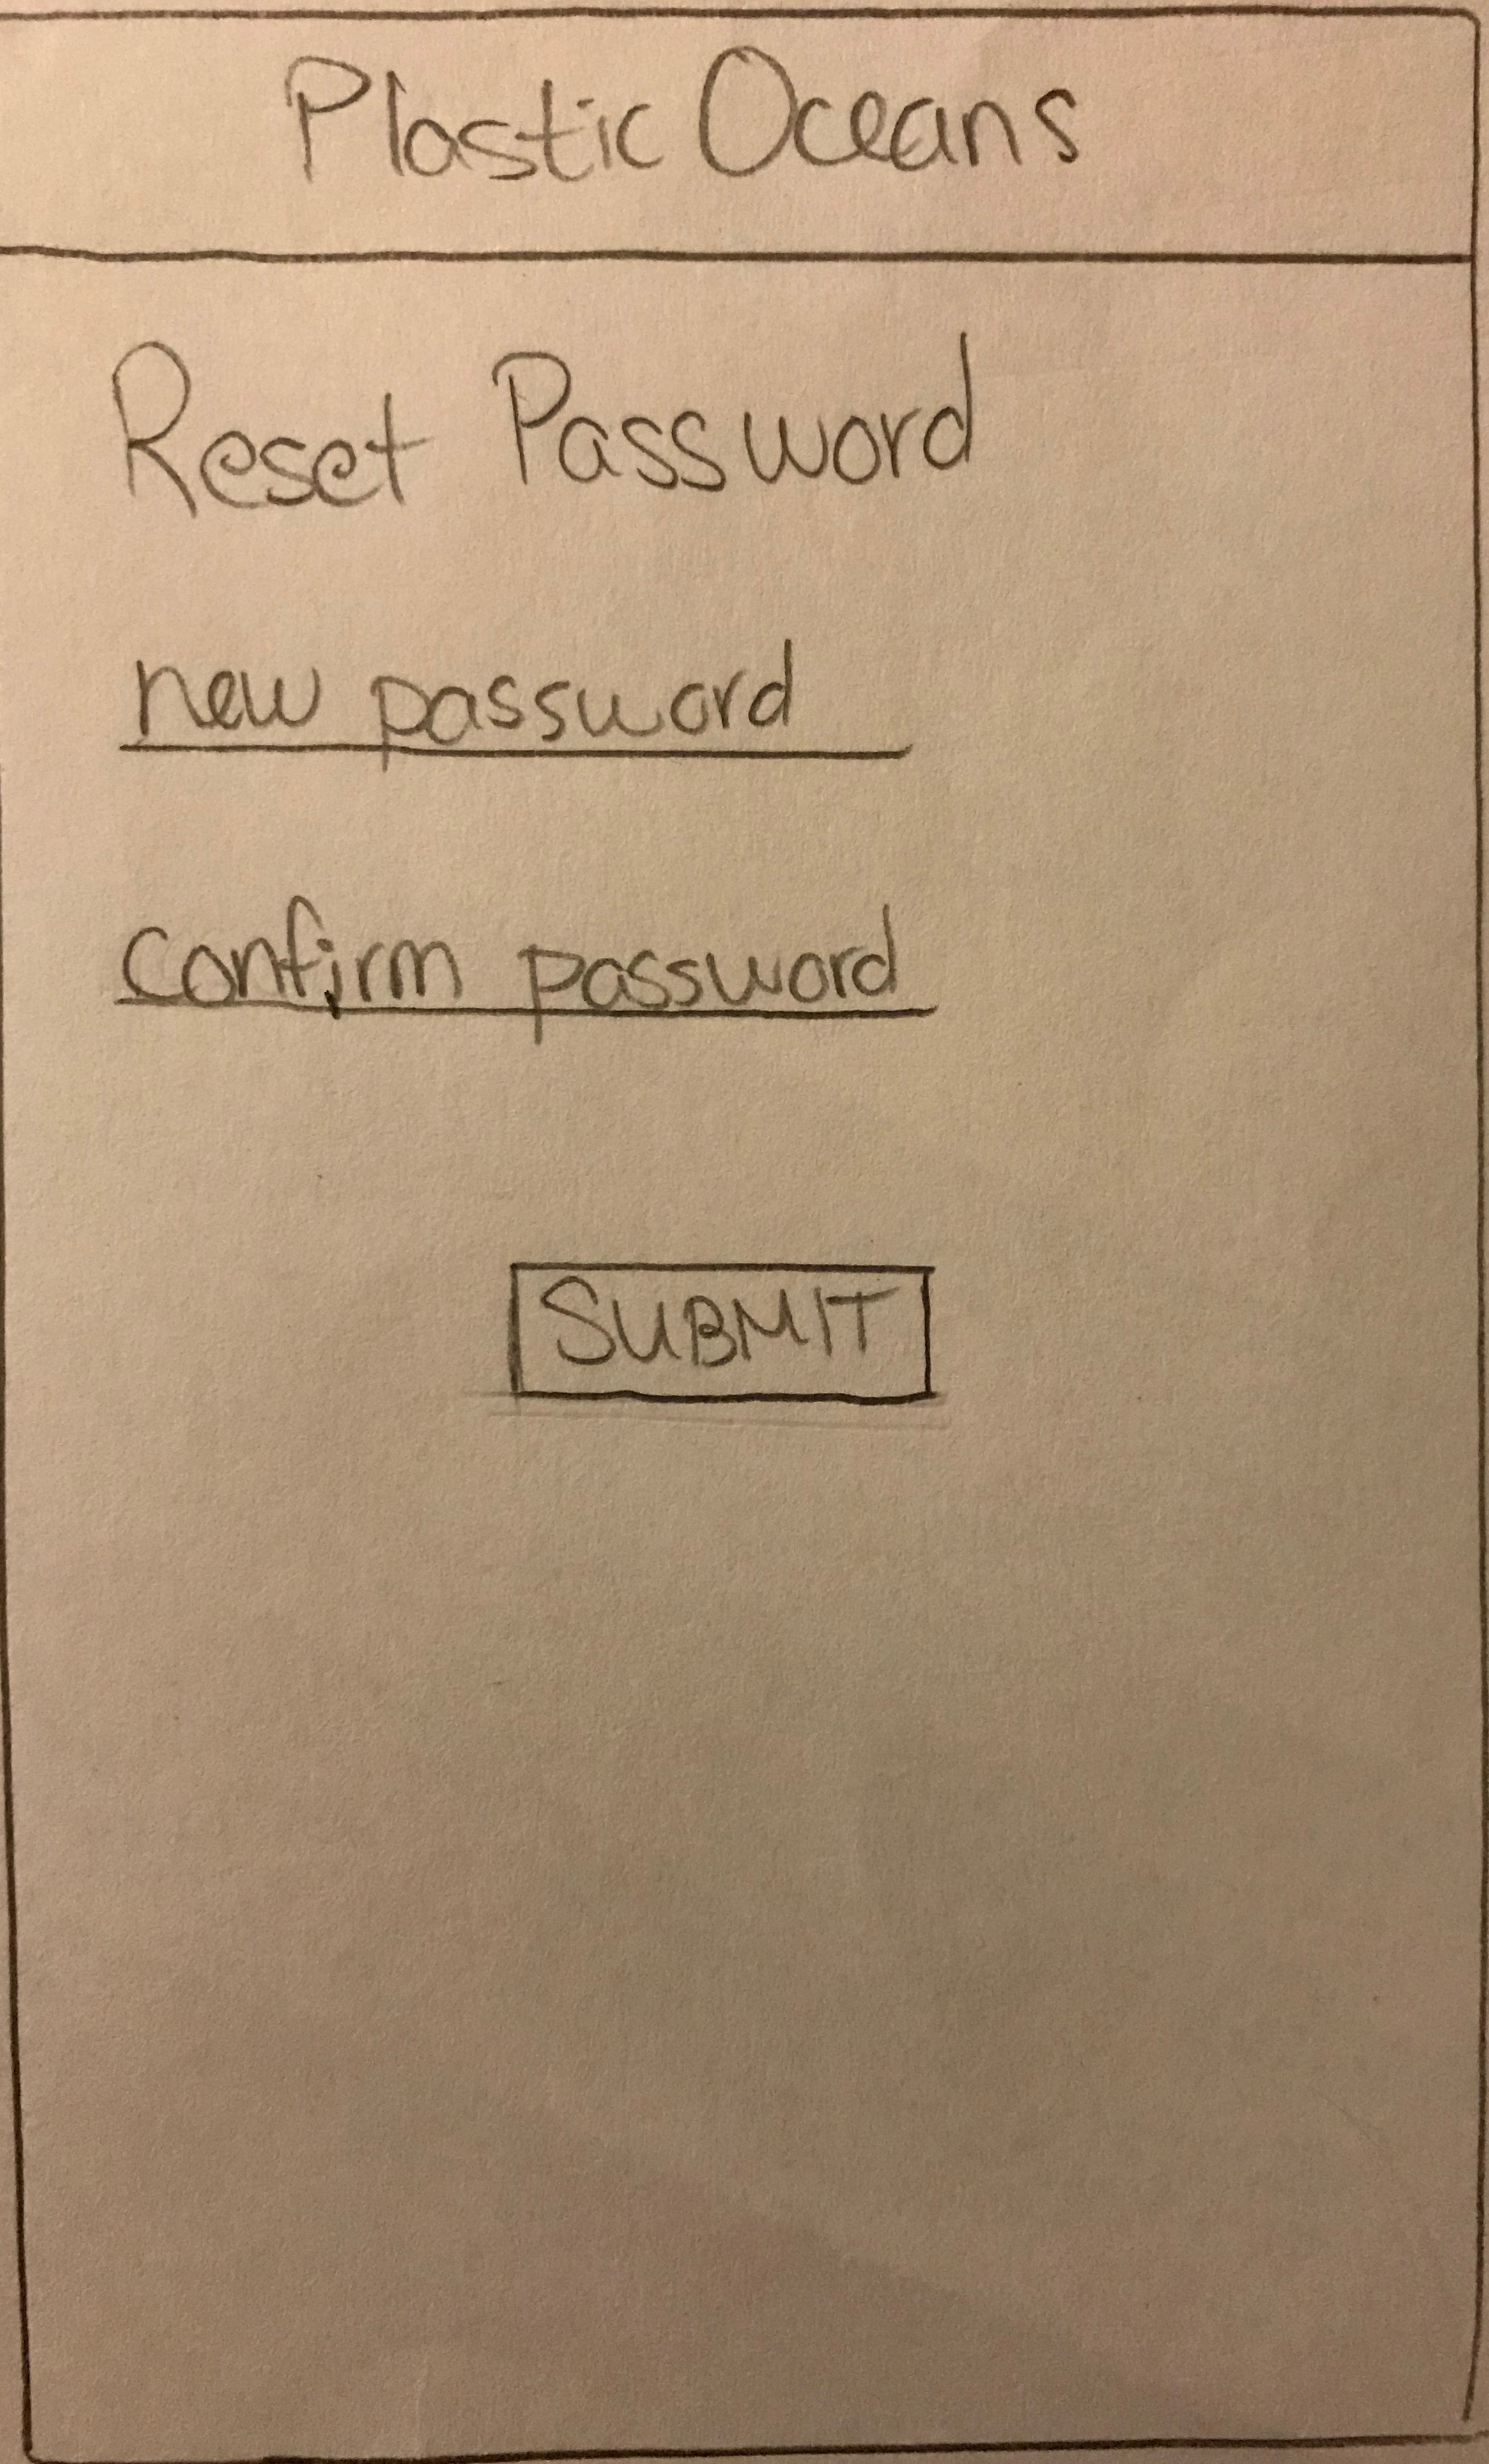 Plastic Oceans
Reset Password
new password
confirm password
SUBMIT